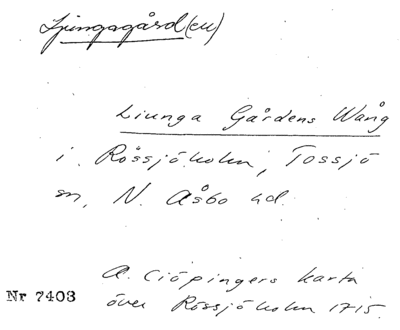 Ljungagård(en)
Liunga Gårdens Wång
i Rössjöholm, Tossjö
sn, N. Åsbo hd.
A. Ciöpingers karta
Nr 7403
över Rössjöholm 1715.